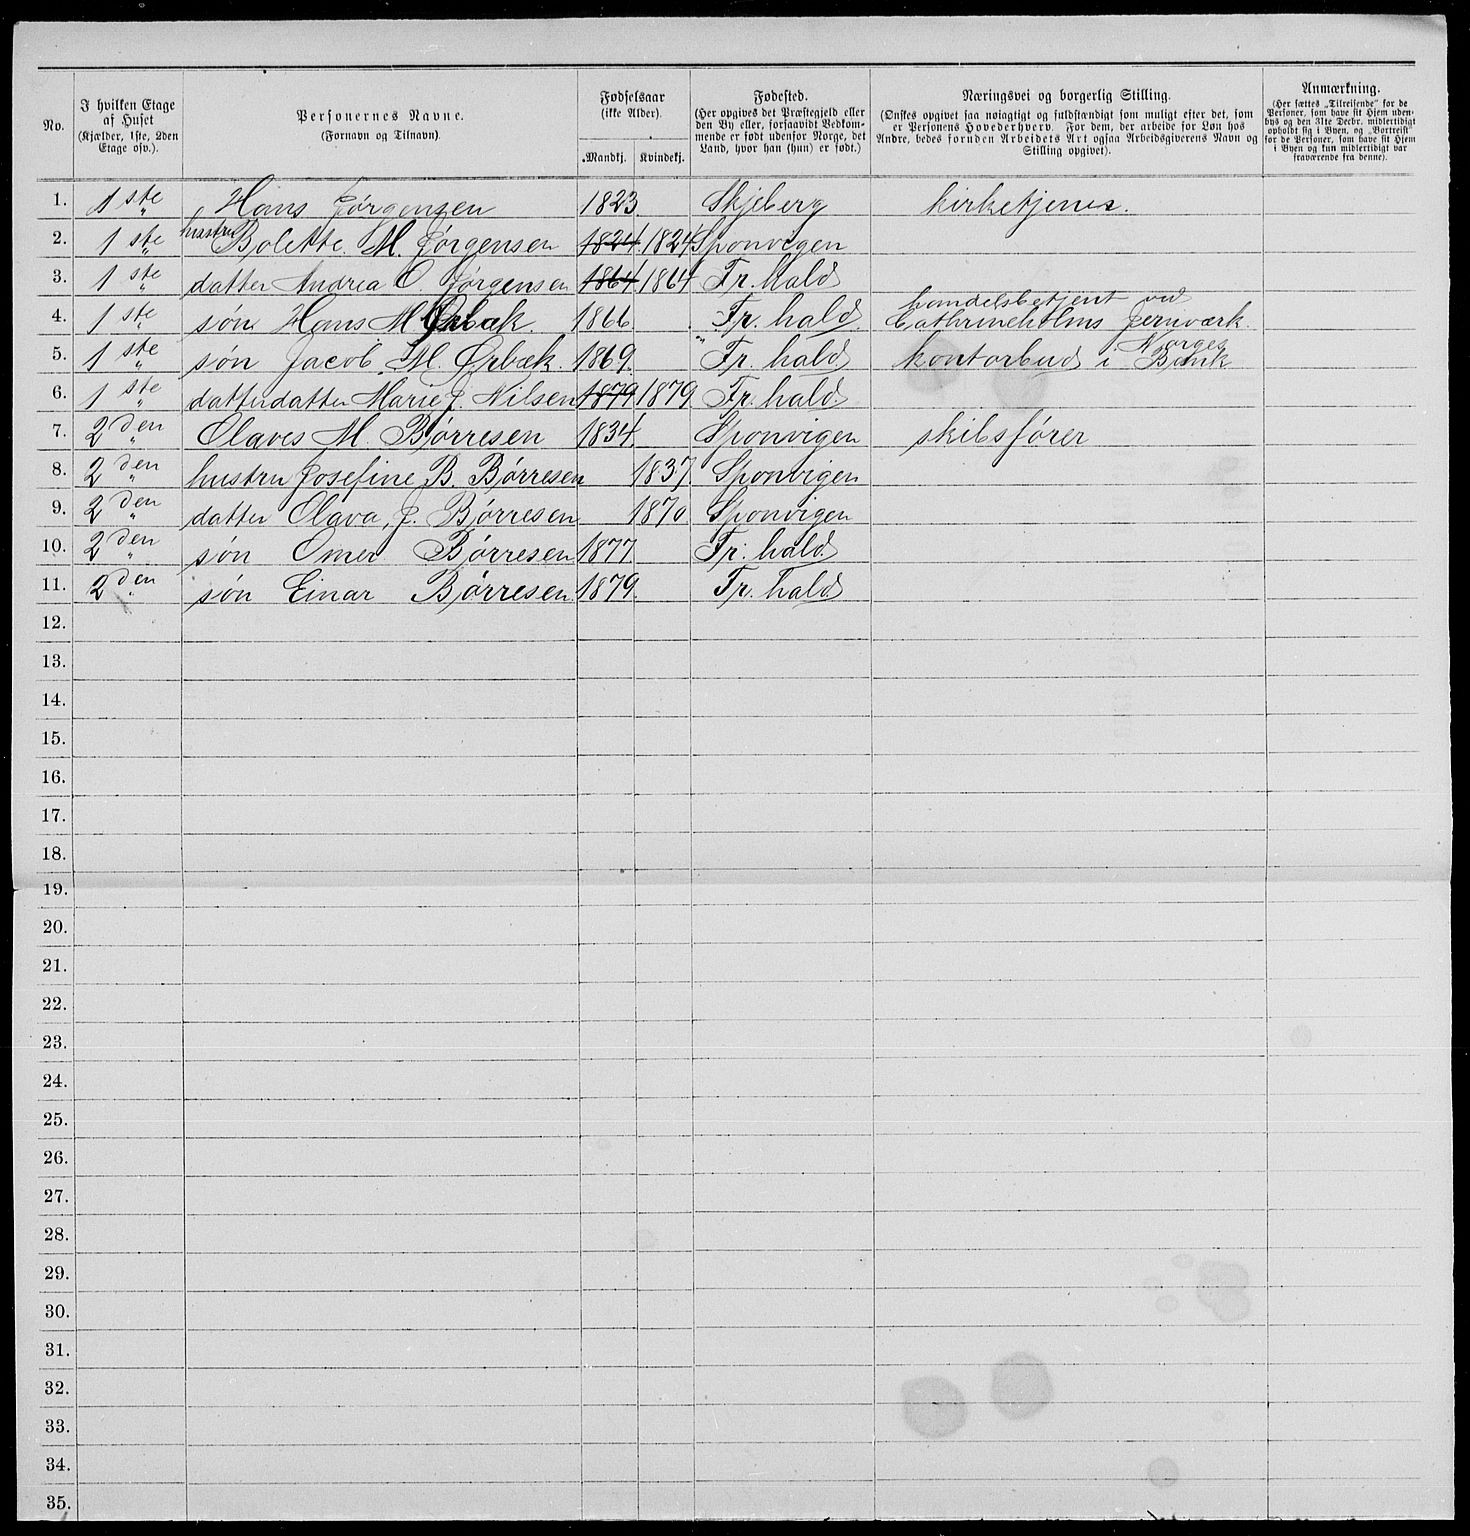 No.
I hvilken Etage
af Huset
(Kjælder, 1ste, 2den
Etage osv.).
Personernes Navne.
(Fornavn og Tilnavn).
Fødselsaar
(ikke Alder).
Mandkj. Kvindekj.
Fødested.
(Her opgives det Præstegjeld eller
den By eller, forsaavidt Vedkom-
mende er født udenfor Norge, det
Land, hvor han (hun) er født.)
Næringsvei og borgerlig Stilling.
(Ønskes opgivet saa nøiagtigt og fuldstændigt som muligt efter det, som
er Personens Hovederhverv. For dem, der arbeide for Løn hos
Andre, bedes foruden Arbeidets Art ogsaa Arbeidsgiverens Navn og
Stilling opgivet).
Anmærkning.
(Her sættes „Tilreisende“ for de
Personer, som have sit Hjem uden-
bys og den 31te Decbr. midlertidigt
opholdt sig i Byen, og „Bortreist“
for de Personer, som have sit Hjem
i Byen og kun midlertidigt var
fraværende fra denne).
1. 1ste Hans Jørgensen 1823 Skjeberg kirketjener.
2. 1ste hustru Bolette. M. Jørgensen 1824 1824 Sponvigen
3. 1ste datter Andrea O. Jørgensen 1864 1864 Fr. hald
4. 1ste søn Hans M Ørbæk. 1866 Fr. hald handelsbetjent ved
Cathrineholms Jernværk.
5. 1ste søn Jacob. M. Ørbæk. 1869. Fr. hald kontorbud i Norges
Bank
6. 1ste datterdatter Marie J. Nilsen 1879 1879 Fr. hald
7. 2den Olaves M. Børresen 1834. Sponvigen skibsfører
8. 2den hustru Josefine B. Børresen 1837 Sponvigen
9. 2den datter Olava, J. Børresen 1870 Sponvigen
10. 2den søn Omer Børresen 1877 Fr. hald
11. 2den søn Einar Børresen. 1879. Fr. hald
12.
13.
14.
15.
16.
17.
18.
19.
20.
21.
22.
23.
24.
25.
26.
27.
28.
29.
30.
31.
32.
33.
34.
35.